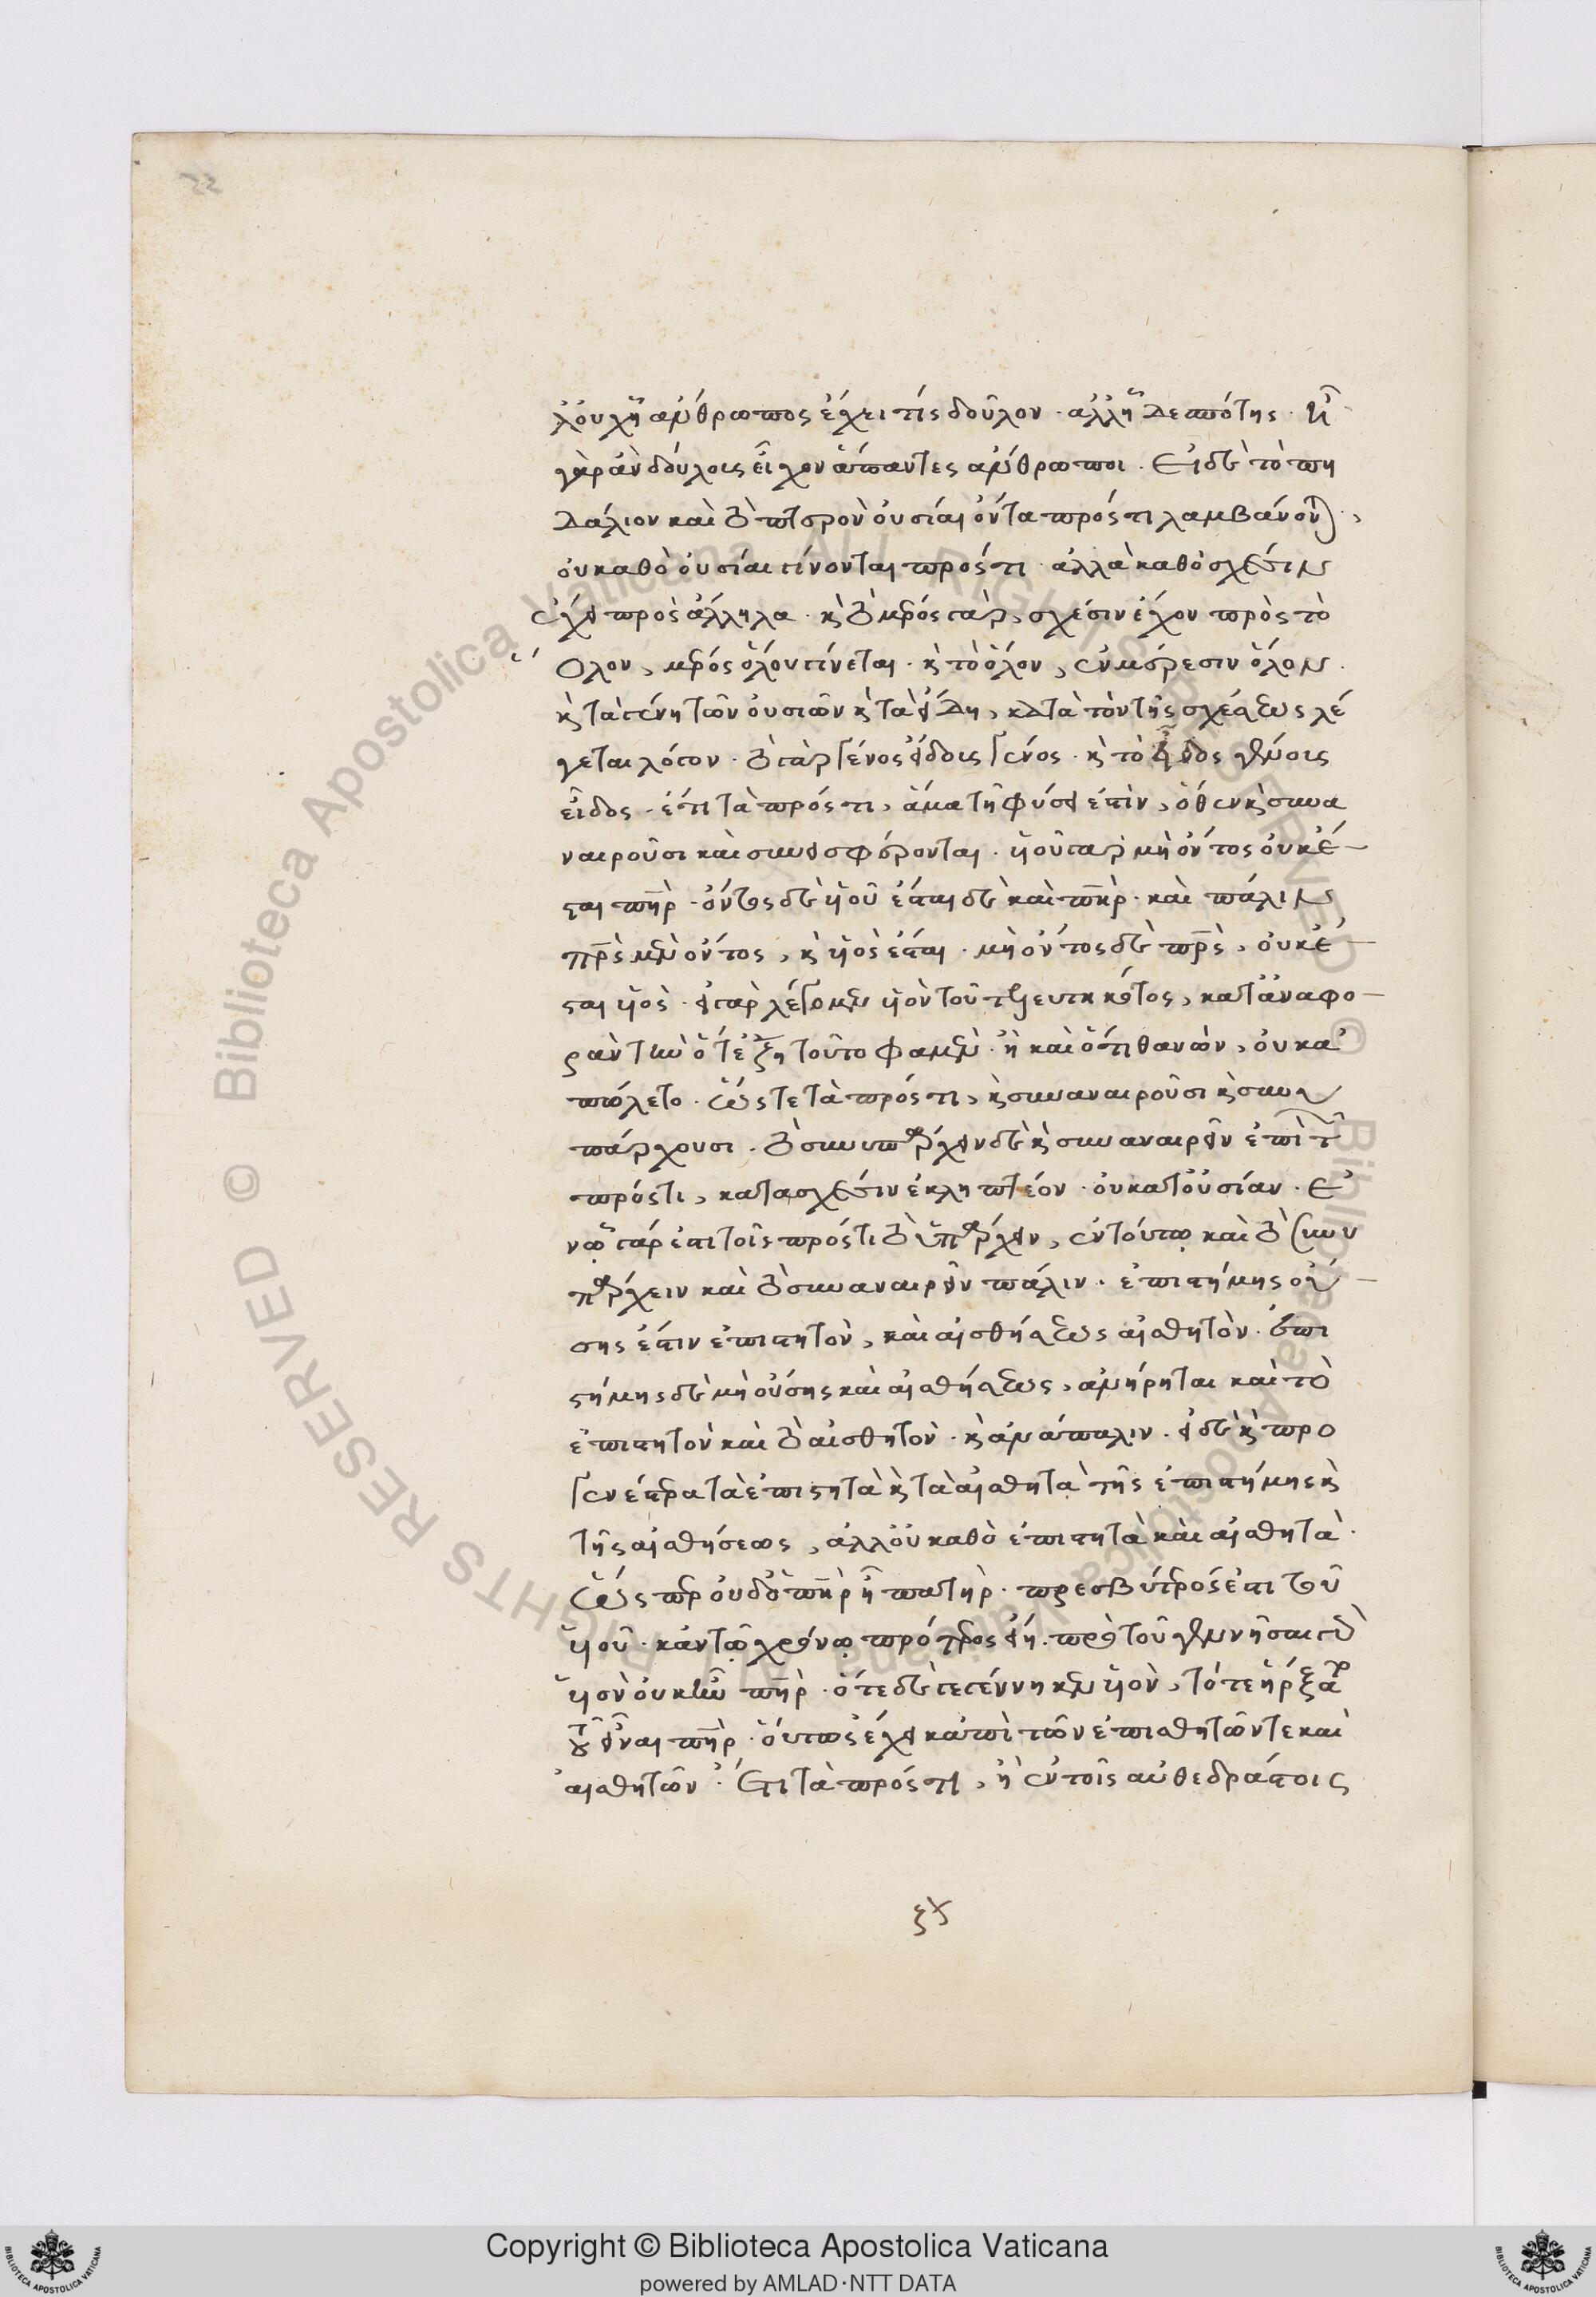 22
λ' οὐχ ἧ ἄνθρωπος ἔχει τίς δοῦλον · ἀλλ' ἧ δεσπότης · ἦ
γὰρ ἂν δούλοις εἶχον ἅπαντες ἄνθρωποι · Εἰ δὲ τὸ πη
δάλιον καὶ τὸ πτερὸν οὐσίαι ὄντα πρός τι λαμβάνον(ται) ,
οὐ καθὸ οὐσίαι γίνονται πρός τι · ἀλλὰ καθὸ σχέσιν
ἔχει πρὸς ἄλληλα · κ(αὶ) τὸ μέρος γὰρ, σχέσιν ἔχον πρὸς τὸ
ὅλον, μέρος ὅλου γίνεται · κ(αὶ) τὸ ὅλον, ἐν μέρεσιν ὅλον ·
κ(αὶ) τὰ γένη τῶν οὐσιῶν κ(αὶ) τὰ εἴδη, κατὰ τὸν τῆς σχέσεως λέ
γεται λόγον · τὸ γὰρ γένος εἴδοις γένος · κ(αὶ) τὸ εἶδος γένοις
εἶδος · ἔτι τὰ πρός τι, ἅμα τῇ φύσει ἐστὶν, ὅθεν κ(αὶ) συνα
ναιροῦσι καὶ συνεισφέρονται · υἱοῦ γὰρ μὴ ὄντος οὐκ ἔ
σται π(ατ)ὴρ · ὄντος δὲ υἱοῦ ἔσται δὲ καὶ π(ατ)ήρ · καὶ πάλιν
π(ατ)ρὸς μὲν ὄντος, κ(αὶ) υἱὸς ἔσται · μὴ ὄντος δὲ π(ατ)ρὸς, οὐκ ἔ
σται υἱὸς · εἰ γὰρ λέγομεν υἱὸν τοῦ τετελευτηκότος, κατ' ἀναφο
ρὰν τὴν ὅτ' ἔζη τοῦτο φαμὲν · ἢ καὶ ὅτι θανὼν, οὐκ ἀ
πώλετο · ὥστε τὰ πρός τι, κ(αὶ) συναναιροῦσι κ(αὶ) συνυ
πάρχουσι · τὸ συνυπάρχειν δὲ κ(αὶ) συναναιρεῖν ἐπὶ τ(ῶν)
πρός τι, κατὰ σχέσιν ἐκληπτέον · οὐ κατ' οὐσίαν · Ἐ
ν ᾧ γάρ ἐστι τοῖς πρός τι τὸ ὑπάρχειν, ἐν τούτῳ καὶ τὸ συνυ
πάρχειν καὶ τὸ συναναιρεῖν πάλιν · ἐπιστήμης οὔ
σης ἐστιν ἐπιστητὸν, καὶ αἰσθήσεως αἰσθητὸν · ἐπι
στήμης δὲ μὴ οὔσης καὶ αἰσθήσεως, ἀνήρηται καὶ τὸ
ἐπιστητὸν καὶ τὸ αἰσθητὸν · κ(αὶ) ἀνάπαλιν · εἰ δὲ κ(αὶ) προ
γενέστερα τὰ ἐπιστητὰ κ(αὶ) τὰ αἰσθητὰ τῆς ἐπιστήμης κ(αὶ)
τῆς αἰσθήσεως, ἀλλ' οὐ καθὸ ἐπιστητὰ καὶ αἰσθητὰ ·
ὥσπερ οὐδ' ὁ π(ατ)ὴρ ἧ πατὴρ · πρεσβύτερός ἐστι τοῦ
υἱοῦ · κἂν τῷ χρόνῳ πρότερος εἴη · πρὸ τοῦ γεννῆσαι γὰρ
υἱὸν οὐκ ἦν π(ατ)ήρ · ὅτε δὲ γεγέννηκεν υἱὸν, τότε ἤρξατο
τοῦ εἶναι π(ατ)ήρ · οὕτως ἔχει κἀπὶ τῶν ἐπισθητῶν τε καὶ
αἰσθητῶν · Ἔτι τὰ πρός τι, ἢ ἐν τοῖς αὐθεδράστοις
Copyright © Biblioteca Apostolica Vaticana
powered by AMLAD·NTT DATA
Biblioteca Apostolica Vaticana ALL RIGHTS RESERVED ©